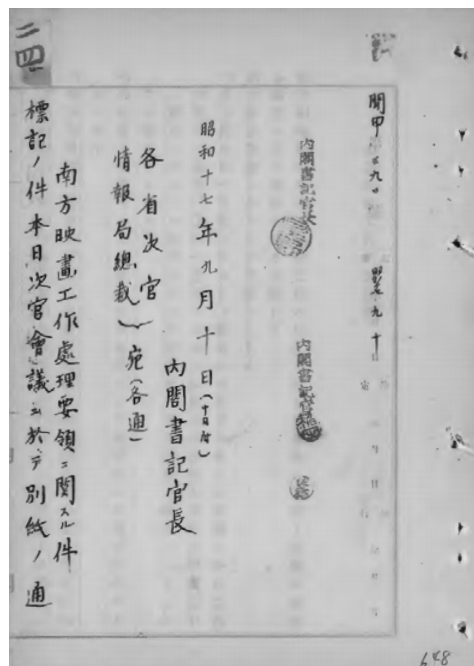 二四
閣甲
内閣書記官長
内閣書記官
昭和十七年九月十日(十日付)
内閣書記官長
各省次官
情報局總裁
宛(各通)
南方映畫工作處理要領ニ関スル件
標記ノ件本日次官會議ニ於テ別紙ノ通
648